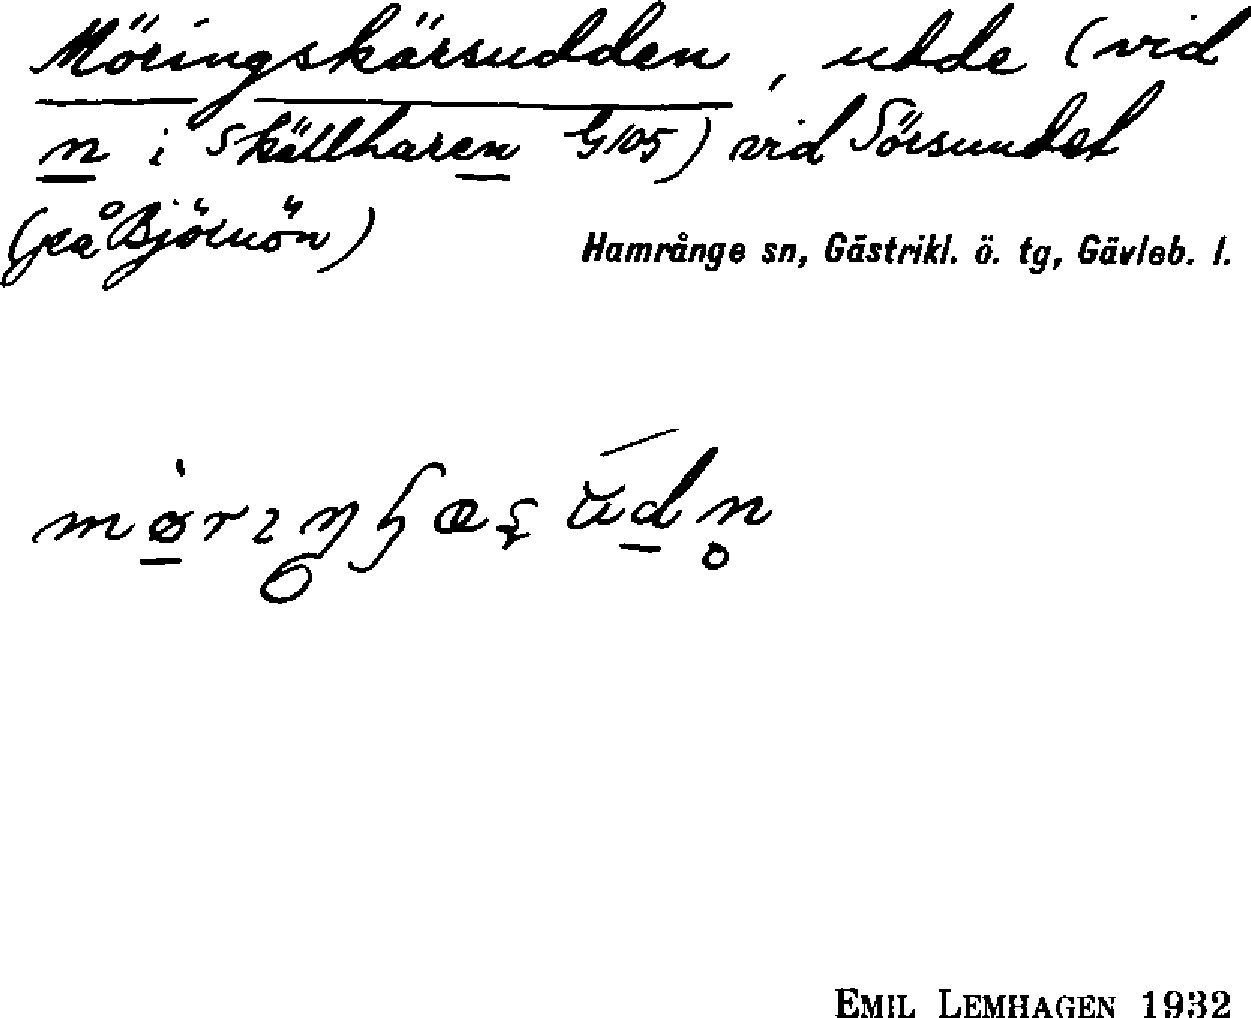 Möringskärsudden, udde (vid
n i Skällharen G105) vid Sörsundet
(på Björnön)
Hamrånge sn, Gästrikl. ö. tg, Gävleb. l.
EMIL LEMHAGEN 1932